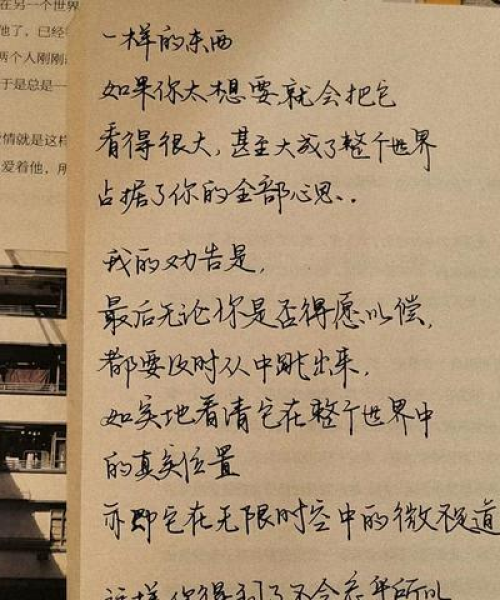 在另一个世界
他了，已经
两个人刚刚
于是总是一
情就是这样
爱着他，所
一样的东西
如果你太想要,就会把它
看得很大,甚至大成了整个世界
占据了你的全部心思..
我的劝告是,
最后无论你是否得愿以偿,
都要及时从中跳出来,
如实地看清它在整个世界中
的真实位置
亦即它在无限时空中的微不足道
这样你得到了不会忘乎所以